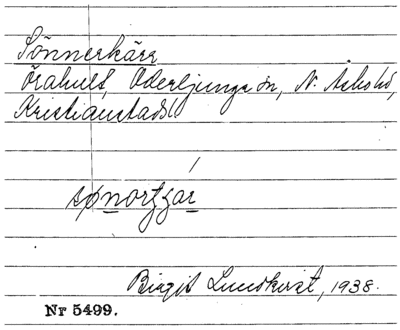 Sönnerkärr
Örahult, Oderljunga sn, N. Åsbo hd,
Kristianstads l
Birgit Lundkvist, 1938.
Nr 5499.